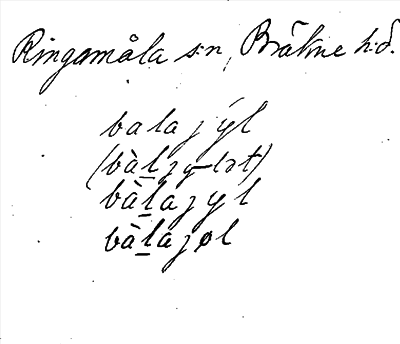 Ringamåla s:n, Bräkne h:d.
bala jýl
(bàl̲jy-lət)
bàl̲ajyl
bàl̲ajøl